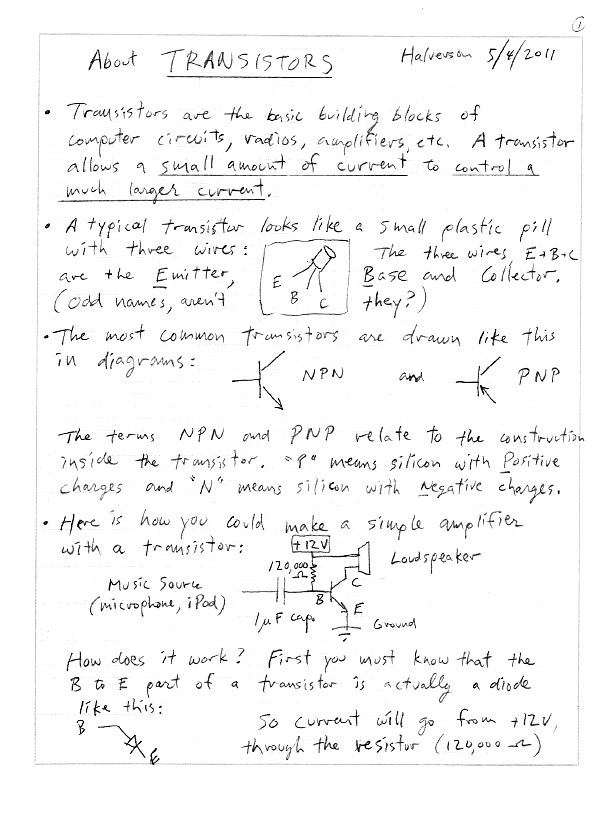 1
About TRANSISTORS Halverson 5/4/2011
• Transistors are the basic building blocks of
computer circuits, radios, amplifiers, etc. A transistor
allows a small amount of current to control a
much larger current.
• A typical transistor looks like a small plastic pill
with three wires: The three wires, E+B+C
are the Emitter, Base and Collector.
(Odd names, aren't they?)
E
B
C
• The most common transistors are drawn like this
in diagrams: NPN and PNP
The terms NPN and PNP relate to the construction
inside the transistor. "P" means silicon with Positive
charges and "N" means silicon with Negative charges.
• Here is how you could make a simple amplifier
with a transistor: +12V
Loudspeaker
120,000 Ω
Music Source
(microphone, iPod)
C
B
E
1μF cap.
Ground
How does it work? First you must know that the
B to E part of a transistor is actually a diode
like this:
B
E
So current will go from +12V,
through the resistor (120,000 Ω)